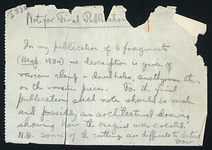 Not for Final Publication
In my publication of 6 fragments
(Hesp. 1930) no description is given of
various clamp + dowel holes, anathyrosis etc.
on the various pieces. For the final
publication such notes should be made
and possibly an architectural drawing
showing how the original was erected.
N.B. Some of the cuttings are difficult to detect